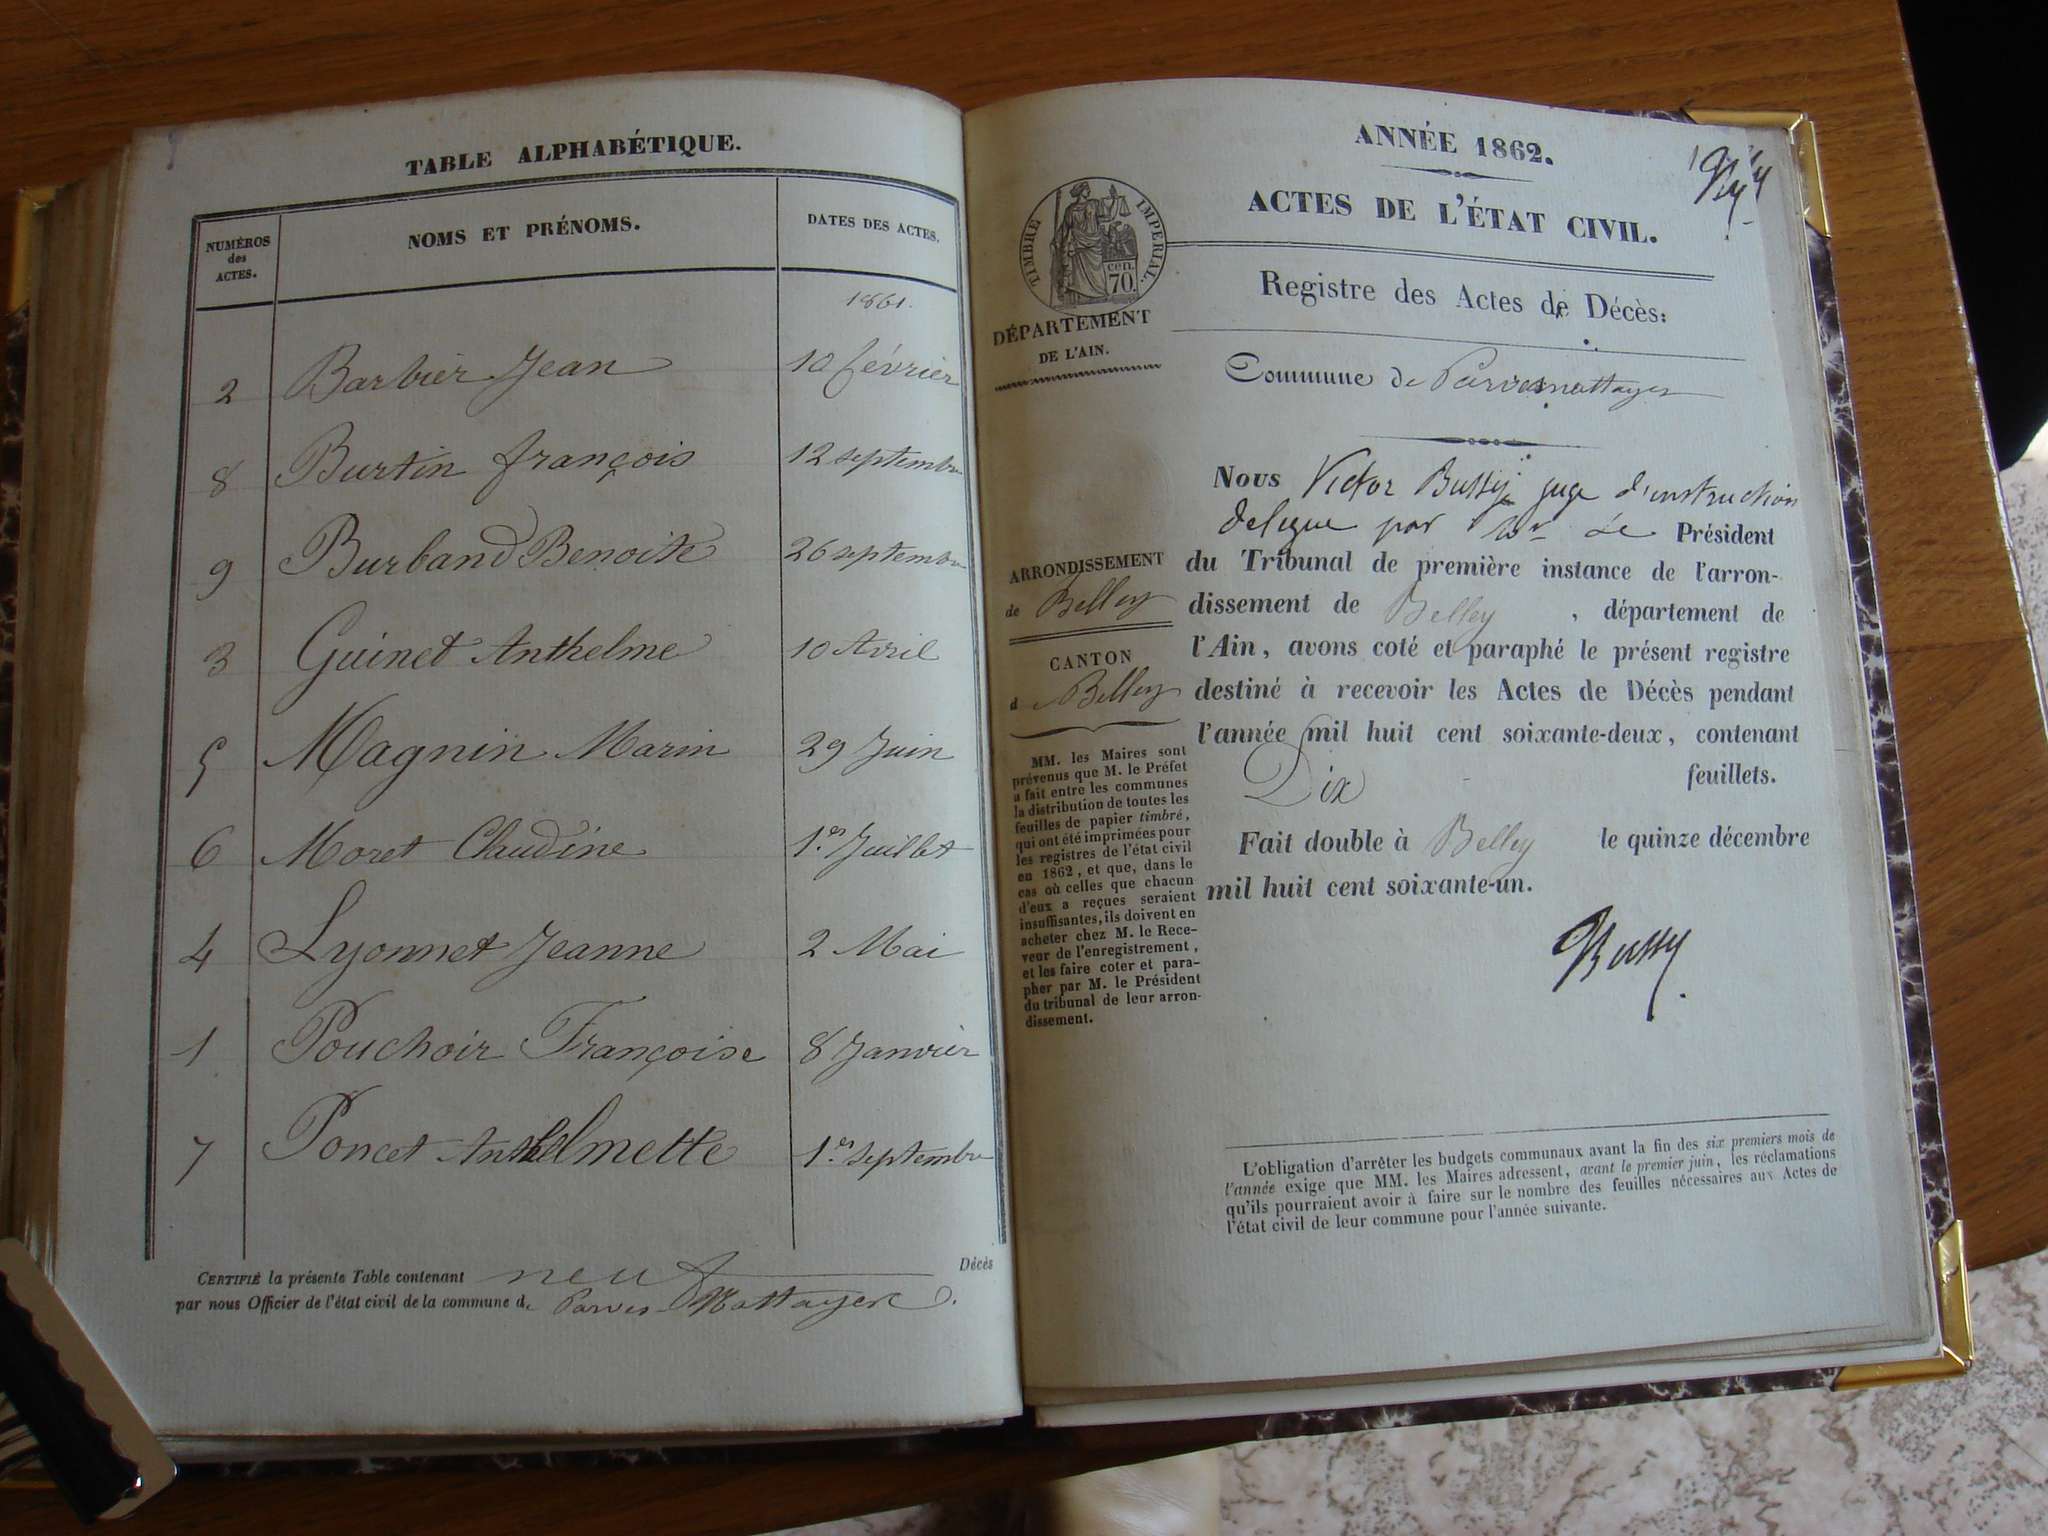 TABLE ALPHABÉTIQUE.
NUMÉROS
des
ACTES.
NOMS ET PRÉNOMS.
DATES DES ACTES.
1861.
2 Barbier Jean 10 février
8 Burtin françois 12 septembre
9 Burband Benoite 26 septembre
3 Guinet Anthelme 10 Avril
5 Magnin Marin 29 Juin
6 Moret Claudine 1er Juillet
4 Lyonnet Jeanne 2 Mai
1 Pouchoir Françoise 8 Janvier
7 Poncet Anthelmette 1er septembre
CERTIFIÉ la présente Table contenant neuf Décès
par nous Officier de l'état civil de la commune de Parves
ANNÉE 1862.
ACTES DE L'ÉTAT CIVIL.
TIMBRE IMPERIAL.
cen.
70.
DÉPARTEMENT
DE L'AIN.
Registre des Actes de Décès:
Commune de
ARRONDISSEMENT
de Belley
CANTON
d Belley
MM. les Maires sont
prévenus que M. le Préfet
a fait entre les communes
la distribution de toutes les
feuilles de papier timbré,
qui ont été imprimées pour
les registres de l'état civil
en 1862, et que, dans le
cas où celles que chacun
d'eux a reçues seraient
insuffisantes, ils doivent en
acheter chez M. le Rece-
veur de l'enregistrement,
et les faire coter et para-
pher par M. le Président
du tribunal de leur arron-
dissement.
Nous Victor Bussy juge d'instruction
delegue par Mr Le Président
du Tribunal de première instance de l'arron-
dissement de Belley , département de
l'Ain, avons coté et paraphé le présent registre
destiné à recevoir les Actes de Décès pendant
l'année mil huit cent soixante-deux, contenant
Dix feuillets.
Fait double à Belley le quinze décembre
mil huit cent soixante-un.
Bussy
L'obligation d'arrêter les budgets communaux avant la fin des six premiers mois de
l'année exige que MM. les Maires adressent, avant le premier juin, les réclamations
qu'ils pourraient avoir à faire sur le nombre des feuilles nécessaires aux Actes de
l'état civil de leur commune pour l'année suivante.